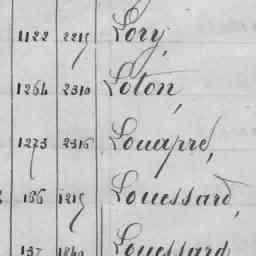 1122 2215 Lory,
1264 2310 Loton,
1273 2316 Louapré,
186 1215 Louessard,
137 1840 Louessard